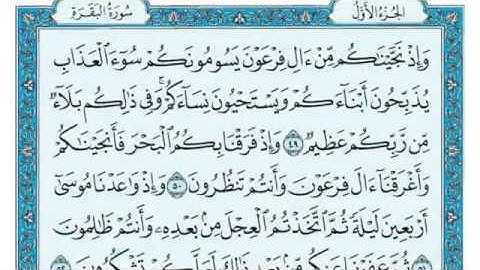 الجزء الأول
سورة البقرة
وَإِذْ نَجَّيْنَٰكُم مِّنْ ءَالِ فِرْعَوْنَ يَسُومُونَكُمْ سُوٓءَ ٱلْعَذَابِ
يُذَبِّحُونَ أَبْنَآءَكُمْ وَيَسْتَحْيُونَ نِسَآءَكُمْ ۚ وَفِى ذَٰلِكُم بَلَآءٌ
مِّن رَّبِّكُمْ عَظِيمٌ ٤٩ وَإِذْ فَرَقْنَا بِكُمُ ٱلْبَحْرَ فَأَنجَيْنَٰكُمْ
وَأَغْرَقْنَآ ءَالَ فِرْعَوْنَ وَأَنتُمْ تَنظُرُونَ ٥٠ وَإِذْ وَٰعَدْنَا مُوسَىٰٓ
أَرْبَعِينَ لَيْلَةً ثُمَّ ٱتَّخَذْتُمُ ٱلْعِجْلَ مِنۢ بَعْدِهِۦ وَأَنتُمْ ظَٰلِمُونَ
٥١ ثُمَّ عَفَوْنَا عَنكُم مِّنۢ بَعْدِ ذَٰلِكَ لَعَلَّكُمْ تَشْكُرُونَ ٥٢